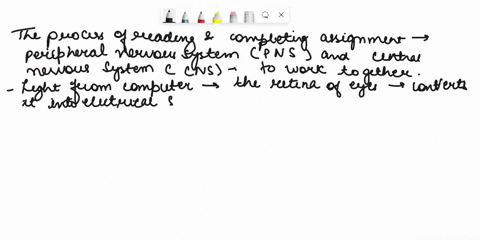 The process of reading & completing assignment →
peripheral nervous system (PNS) and central
nervous system ( CNS) - to work together.
- Light from computer → the retina of eyes → converts
it into electrical s